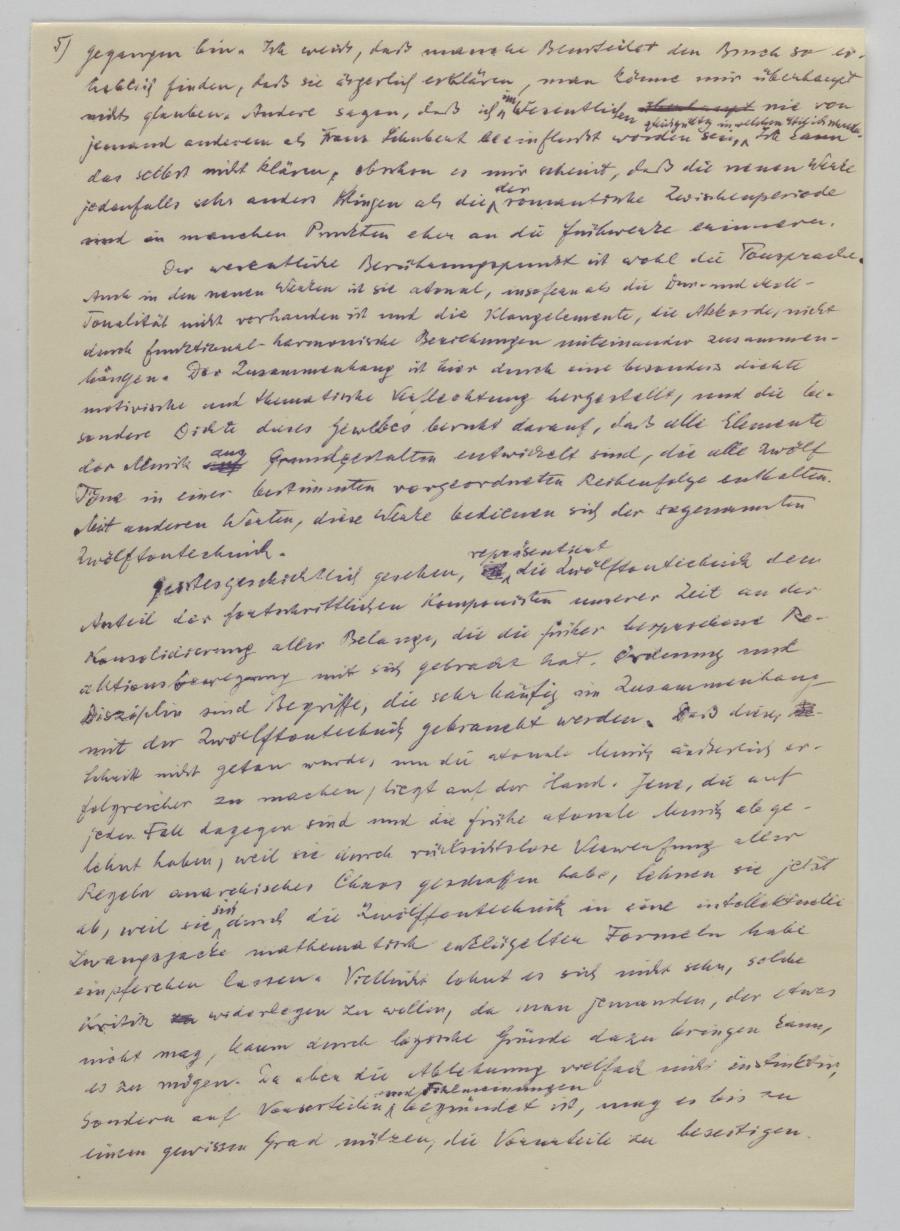 5) gegangen bin. Ich weiss, daß manche Beurteiler den Bruch so er-
heblich finden, daß sie ärgerlich erklären, man könne mir überhaupt
nichts glauben. Andere sagen, daß ich im Wesentlichen nie von
gleichgültig in welchem Stil ich schreibe.
jemand anderem als Franz Schubert beeinflußt worden sei, Ich kann
das selbst nicht klären, obschon es mir scheint, daß die neuen Werke
jedenfalls sehr anders klingen als die der romantische Zwischenperiode
und in manchen Punkten eher an die Frühwerke erinnern.
Der wesentliche Berührungspunkt ist wohl die Tonsprache.
Auch in den neuen Werken ist sie atonal, insofern als die Dur- und Moll-
Tonalität nicht vorhanden ist und die Klangelemente, die Akkorde, nicht
durch funktional-harmonische Beziehungen miteinander zusammen-
hängen. Der Zusammenhang ist hier durch eine besonders dichte
motivische und thematische Verflechtung hergestellt, und die be-
sondere Dichte dieses Gewebes beruht darauf, daß alle Elemente
der Musik aus Grundgestalten entwickelt sind, die alle zwölf
Töne in einer bestimmten vorgeordneten Reihenfolge enthalten.
Mit anderen Worten, diese Werke bedienen sich der sogenannten
Zwölftontechnik.
Geistesgeschichtlich gesehen, repräsentiert die Zwölftontechnik den
Anteil der fortschrittlichen Komponisten unserer Zeit an der
Konsolidierung aller Belange, die die früher besprochene Re-
aktionsbewegung mit sich gebracht hat. Ordnung und
Disziplin sind Begriffe, die sehr häufig im Zusammenhang
mit der Zwölftontechnik gebraucht werden. Daß dieser
Schritt nicht getan wurde, um die atonale Musik äußerlich er-
folgreicher zu machen, liegt auf der Hand. Jene, die auf
jeden Fall dagegen sind und die frühe atonale Musik abge-
lehnt haben, weil sie durch rücksichtslose Verwerfung aller
Regeln anarchisches Chaos geschaffen habe, lehnen sie jetzt
ab, weil sie sich durch die Zwölftontechnik in eine intellektuelle
Zwangsjacke mathematisch erklügelter Formeln habe
einpferchen lassen. Vielleicht lohnt es sich nicht sehr, solche
Kritik widerlegen zu wollen, da man jemanden, der etwas
nicht mag, kaum durch logische Gründe dazu bringen kann,
es zu mögen. Da aber die Ablehnung vielfach nicht instinktiv,
sondern auf Vorurteilen und Fehlmeinungen begründet ist, mag es bis zu
einem gewissen Grad nützen, die Vorurteile zu beseitigen.